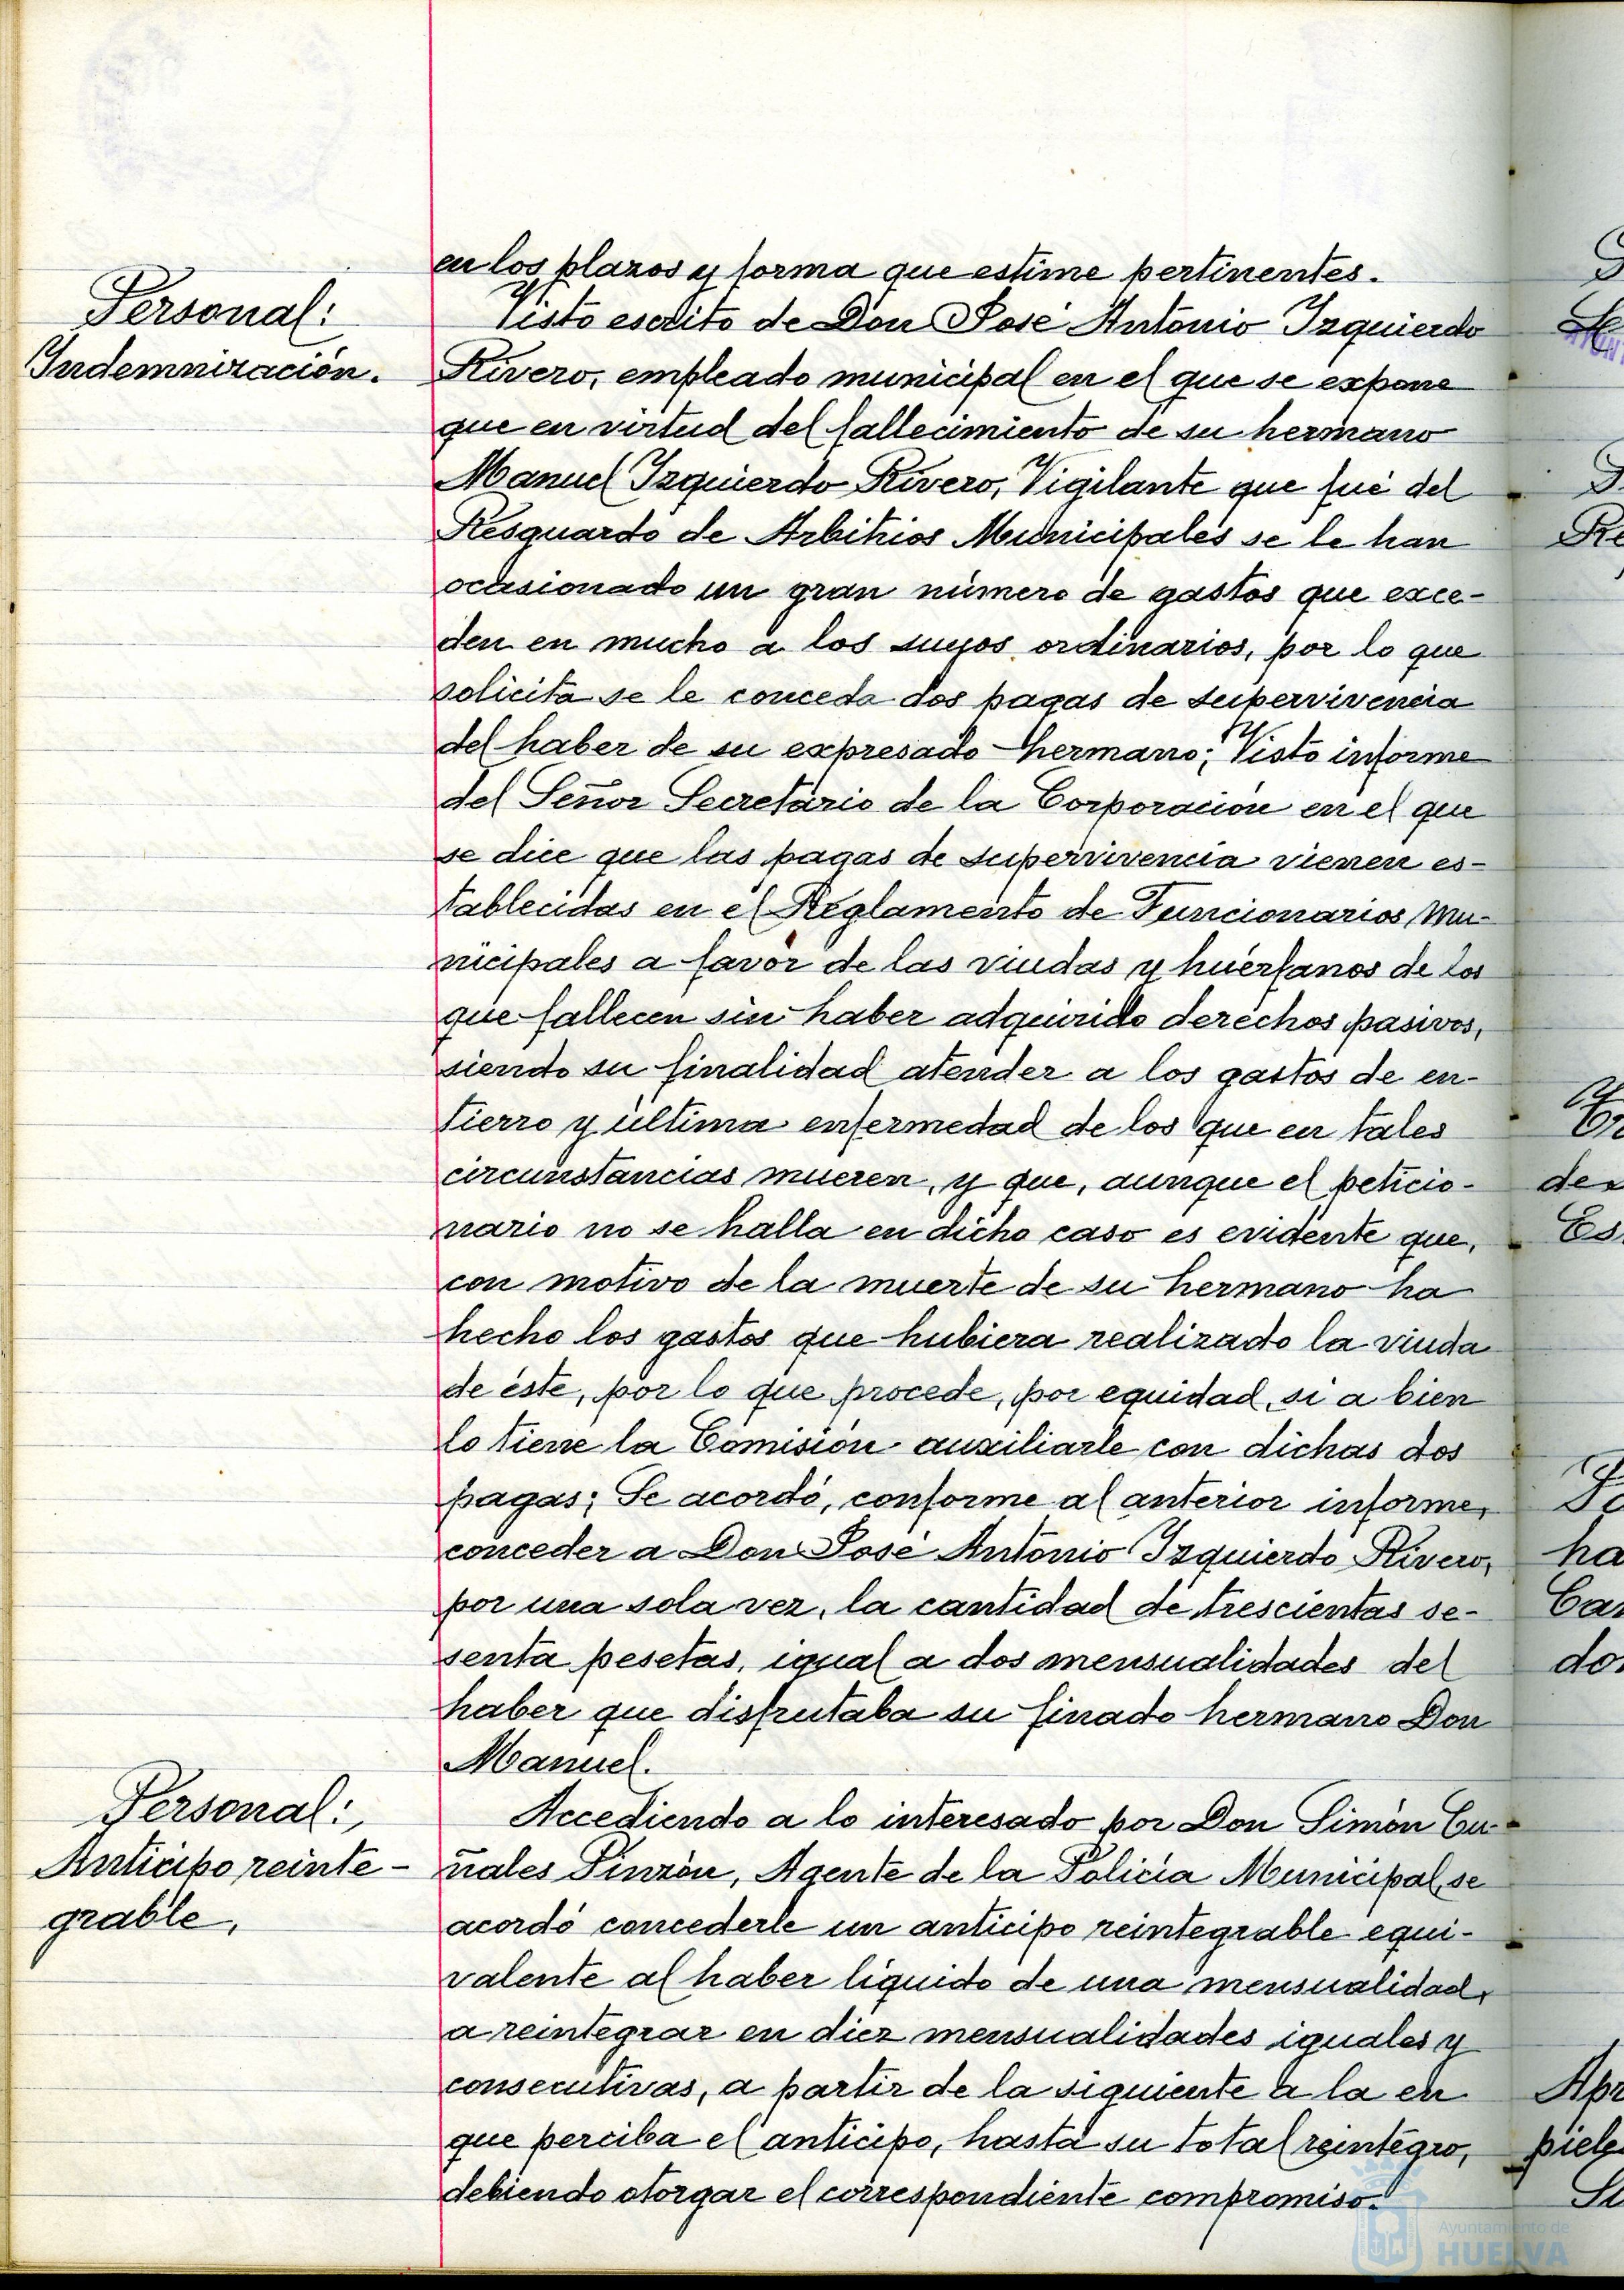 en los plazos y forma que estime pertinentes.
Personal:
Indemnización.
Visto escrito de Don José Antonio Izquierdo
Rivero, empleado municipal en el que se expone
que en virtud del fallecimiento de su hermano
Manuel Izquierdo Rivero, Vigilante que fué del
Resguardo de Arbitrios Municipales se le han
ocasionado un gran número de gastos que exce-
den en mucho a los suyos ordinarios, por lo que
solicita se le conceda dos pagas de supervivencia
del haber de su expresado hermano; Visto informe
del Señor Secretario de la Corporación en el que
se dice que las pagas de supervivencia vienen es-
tablecidas en el Reglamento de Funcionarios Mu-
nicipales a favor de las viudas y huérfanos de los
que fallecen sin haber adquirido derechos pasivos,
siendo su finalidad atender a los gastos de en-
tierro y última enfermedad de los que en tales
circunstancias mueren, y que, aunque el peticio-
nario no se halla en dicho caso es evidente que,
con motivo de la muerte de su hermano ha
hecho los gastos que hubiera realizado la viuda
de éste, por lo que procede, por equidad, si a bien
lo tiene la Comisión auxiliarle con dichas dos
pagas; Se acordó, conforme al anterior informe,
conceder a Don José Antonio Izquierdo Rivero,
por una sola vez, la cantidad de trescientas se-
senta pesetas, igual a dos mensualidades del
haber que disfrutaba su finado hermano Don
Manuel.
Personal:
Anticipo reinte-
grable.
Accediendo a lo interesado por Don Simón Cu-
ñales Pinzón, Agente de la Policía Municipal, se
acordó concederle un anticipo reintegrable equi-
valente al haber líquido de una mensualidad,
a reintegrar en diez mensualidades iguales y
consecutivas, a partir de la siguiente a la en
que perciba el anticipo, hasta su total reintegro,
debiendo otorgar el correspondiente compromiso.
Ayuntamiento de
HUELVA